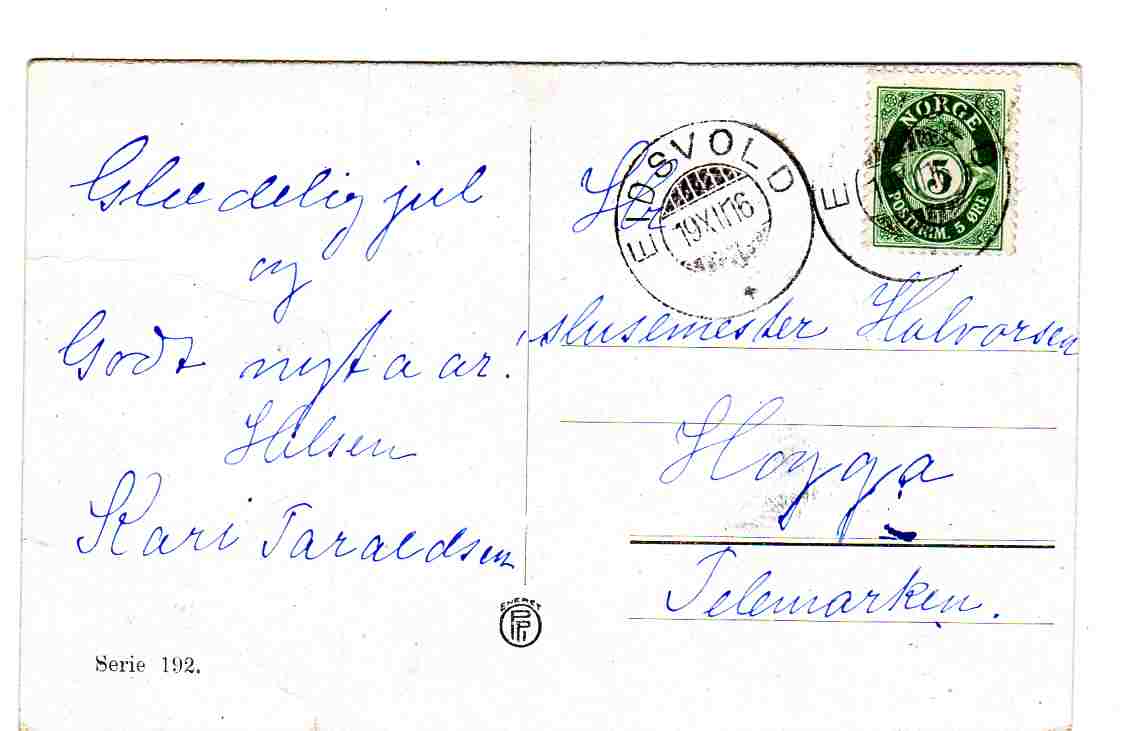 Gledelig jul
og
Godt nyt aar!
Hilsen
Kari Taraldsen
Serie 192.
ENERET
Hr
slusemester Halvorsen
Hogga
Telemarken.
EIDSVOLD
19 XII 16
E
NORGE
5
POSTFRIM. 5 ØRE